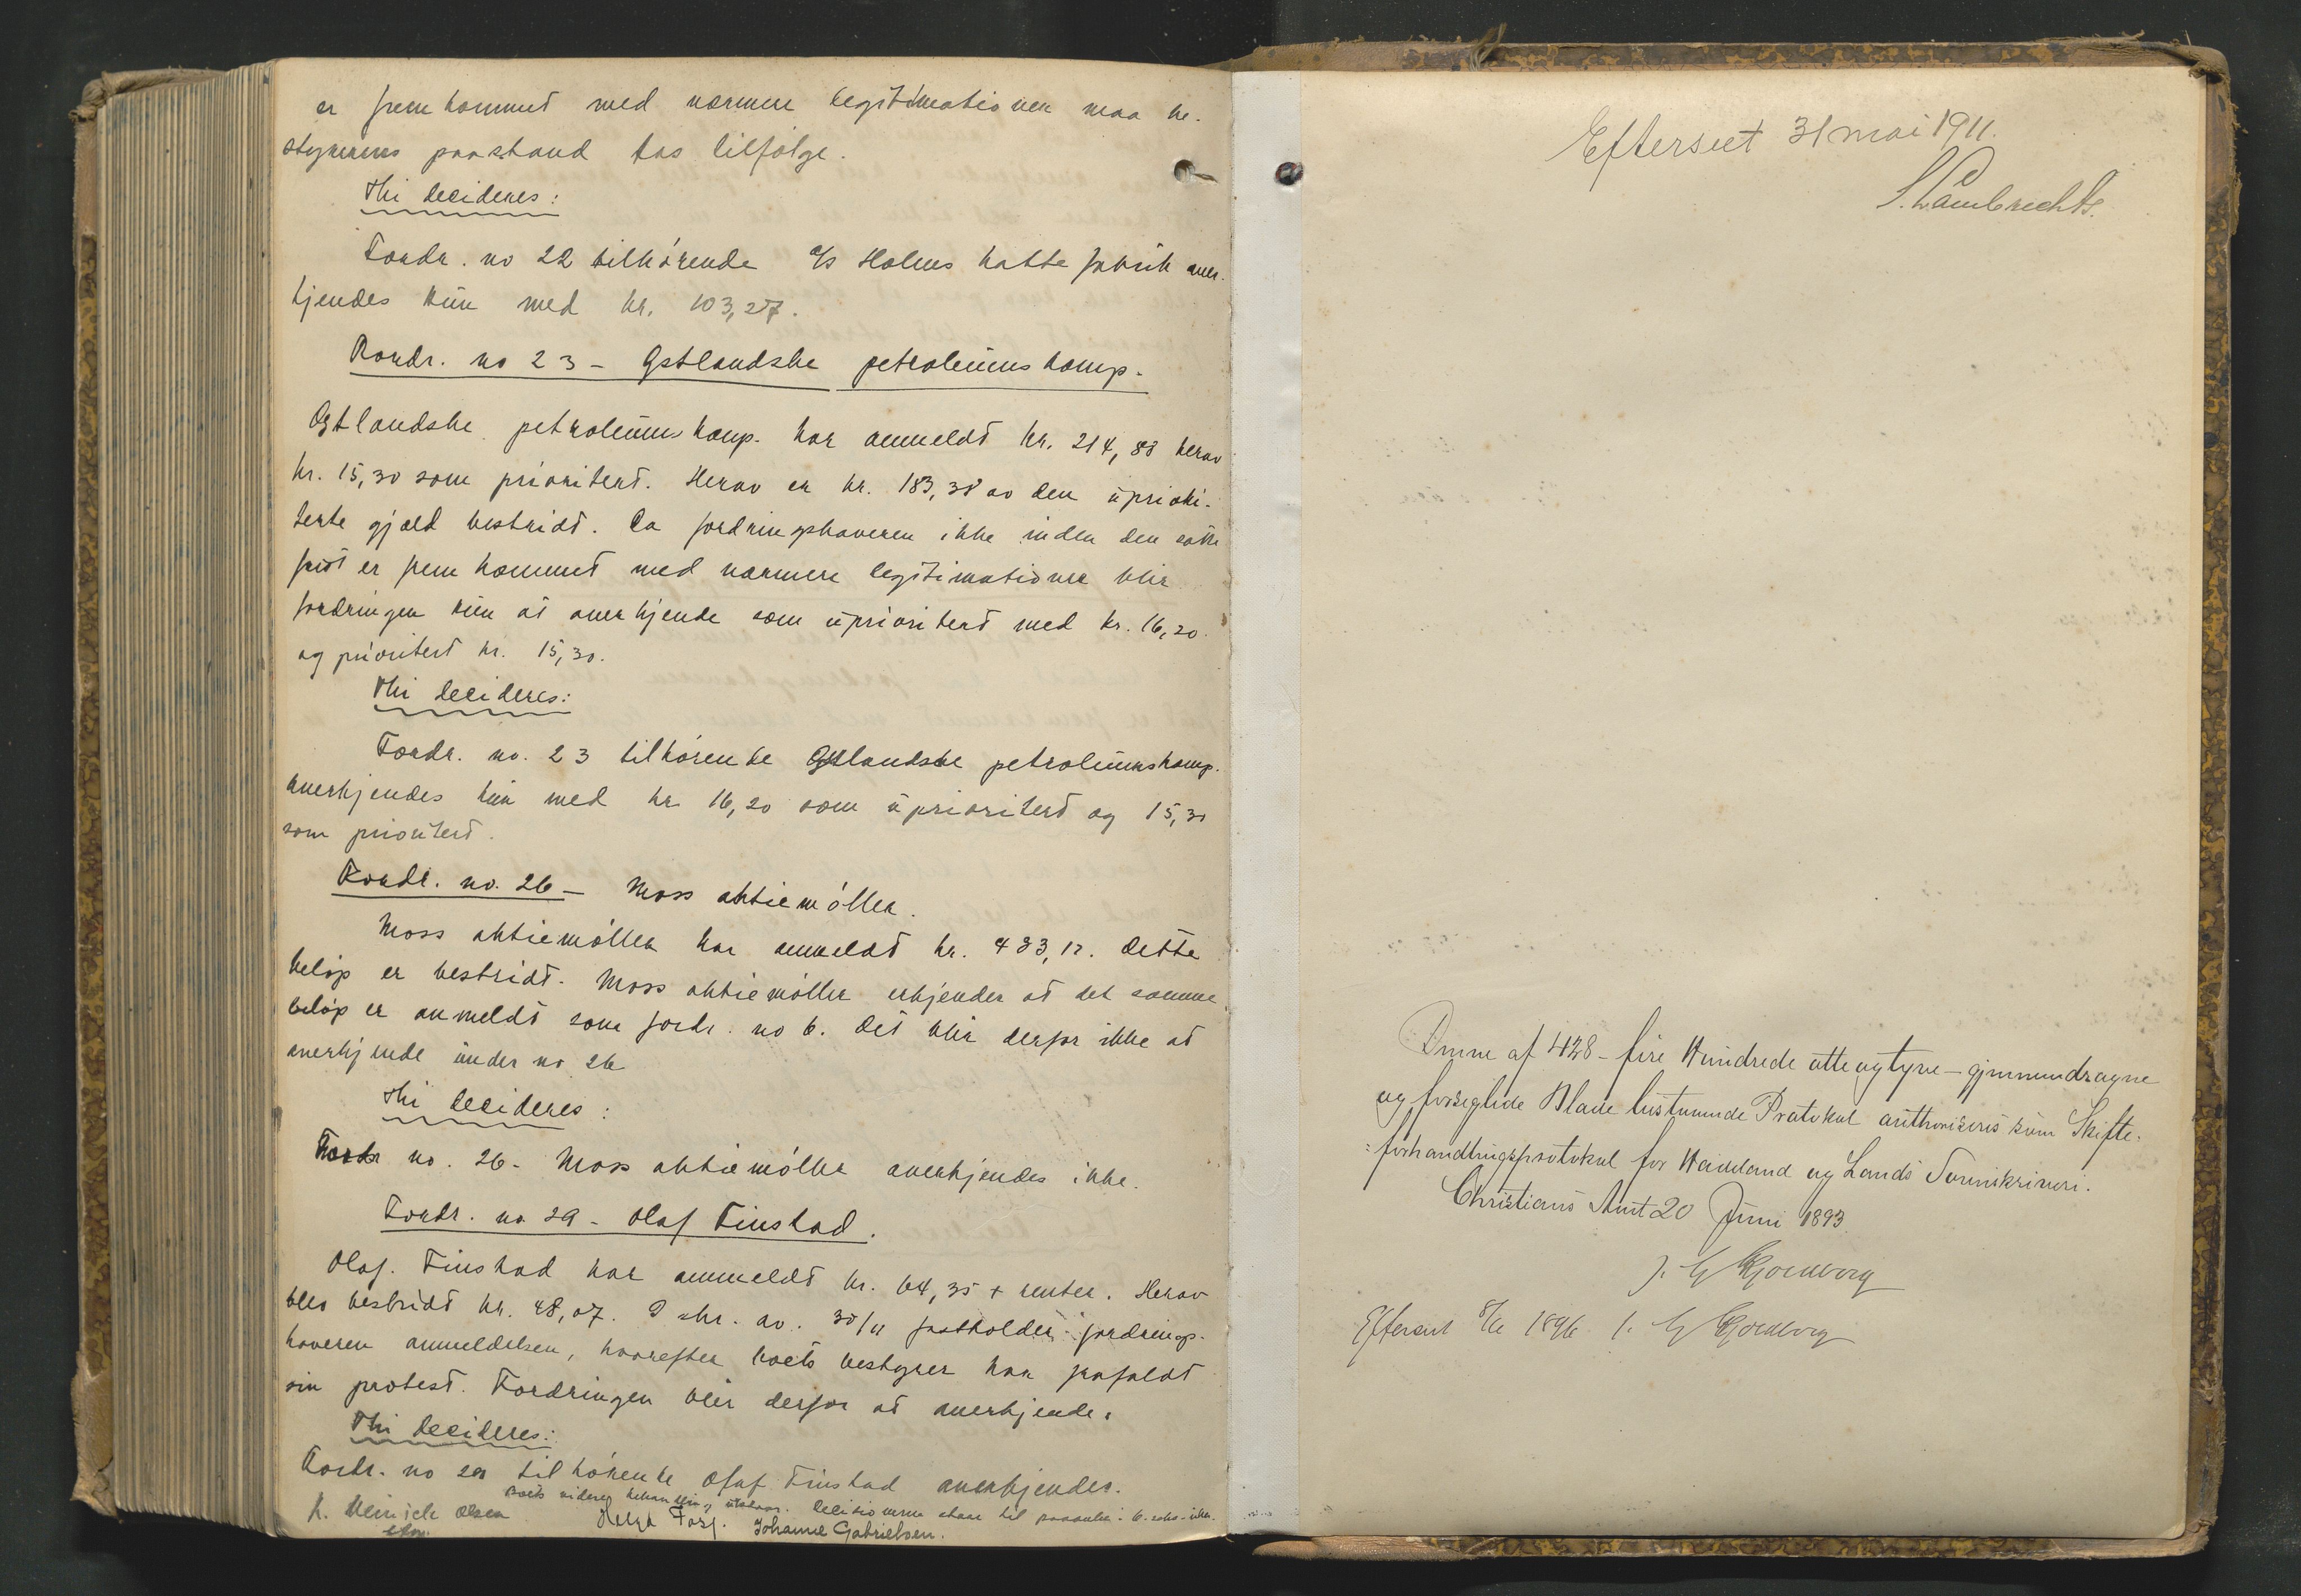 er fremkommet med nærmere legitimationer maa be-
styrerens paastand tas tilfølge.
Thi decideres:
Fordr. no 22 tilhørende A/s Holms hatte fabrik aner-
kjendes kun med kr. 103,27.
Fordr. no 23 - Østlandske petroleums komp.
Østlandske petroleumskomp. har anmeldt kr. 214,88 herav
kr. 15,30 som prioritert. Herav er kr. 183,38 av den upriori-
terte gjæld bestridt. Da fordringshaveren ikke inden den satte
frist er fremkommet med nærmere legitimationer blir
fordringen kun at anerkjende som uprioritert med kr. 16,20.
og prioritert kr. 15,30.
Thi decideres:
Fordr. no. 23 tilhørende Østlandske petroleumskomp.
anerkjendes kun med kr 16,20 som uprioritert og 15,30
som prioritert.
Fordr. no. 26 - Moss aktiemøller.
Moss aktiemøller har anmeldt kr. 433,12. Dette
beløp er bestridt. Moss aktiemøller erkjender at det samme
beløp er anmeldt som fordr. no 6. Det blir derfor ikke at
anerkjende under no 26
Thi decideres:
Fordr no. 26 - Moss aktiemøller anerkjendes ikke.
Fordr. no. 29 - Olaf Finstad.
Olaf. Finstad har anmeldt kr. 64,35 + renter. Herav
blev bestridt kr. 48,07. I skr. av. 30/11 fastholder fordrings-
haveren anmeldelsen, hvorefter boets bestyrer har frafaldt
sin protest. Fordringen blir derfor at anerkjende.
Thi decideres:
Fordr. no 29 tilhørende Olaf Finstad anerkjendes.
Boets videre behandling utstaar. Decisionerne staar til paaanke i 6 uker.
H. Meinich Olsen Helga Johanne Gabrielsen.
Efterseet 31 mai 1911.
S. Lambrechts.
Denne af 428 - fire Hundrede otte og tyve - gjennemdragne
og forseglede Blade bestaaende Protokol authoriseres som Skifte-
=forhandlingsprotokol for Hadeland og Lands Sorenskriveri.
Christians Amt 20 Juni 1893
Efterseet 1896